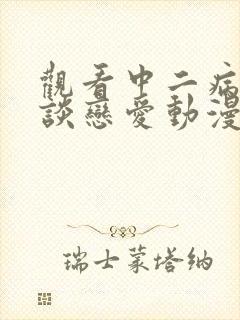 觀看中二病
談戀愛動漫
瑞士蒙塔納